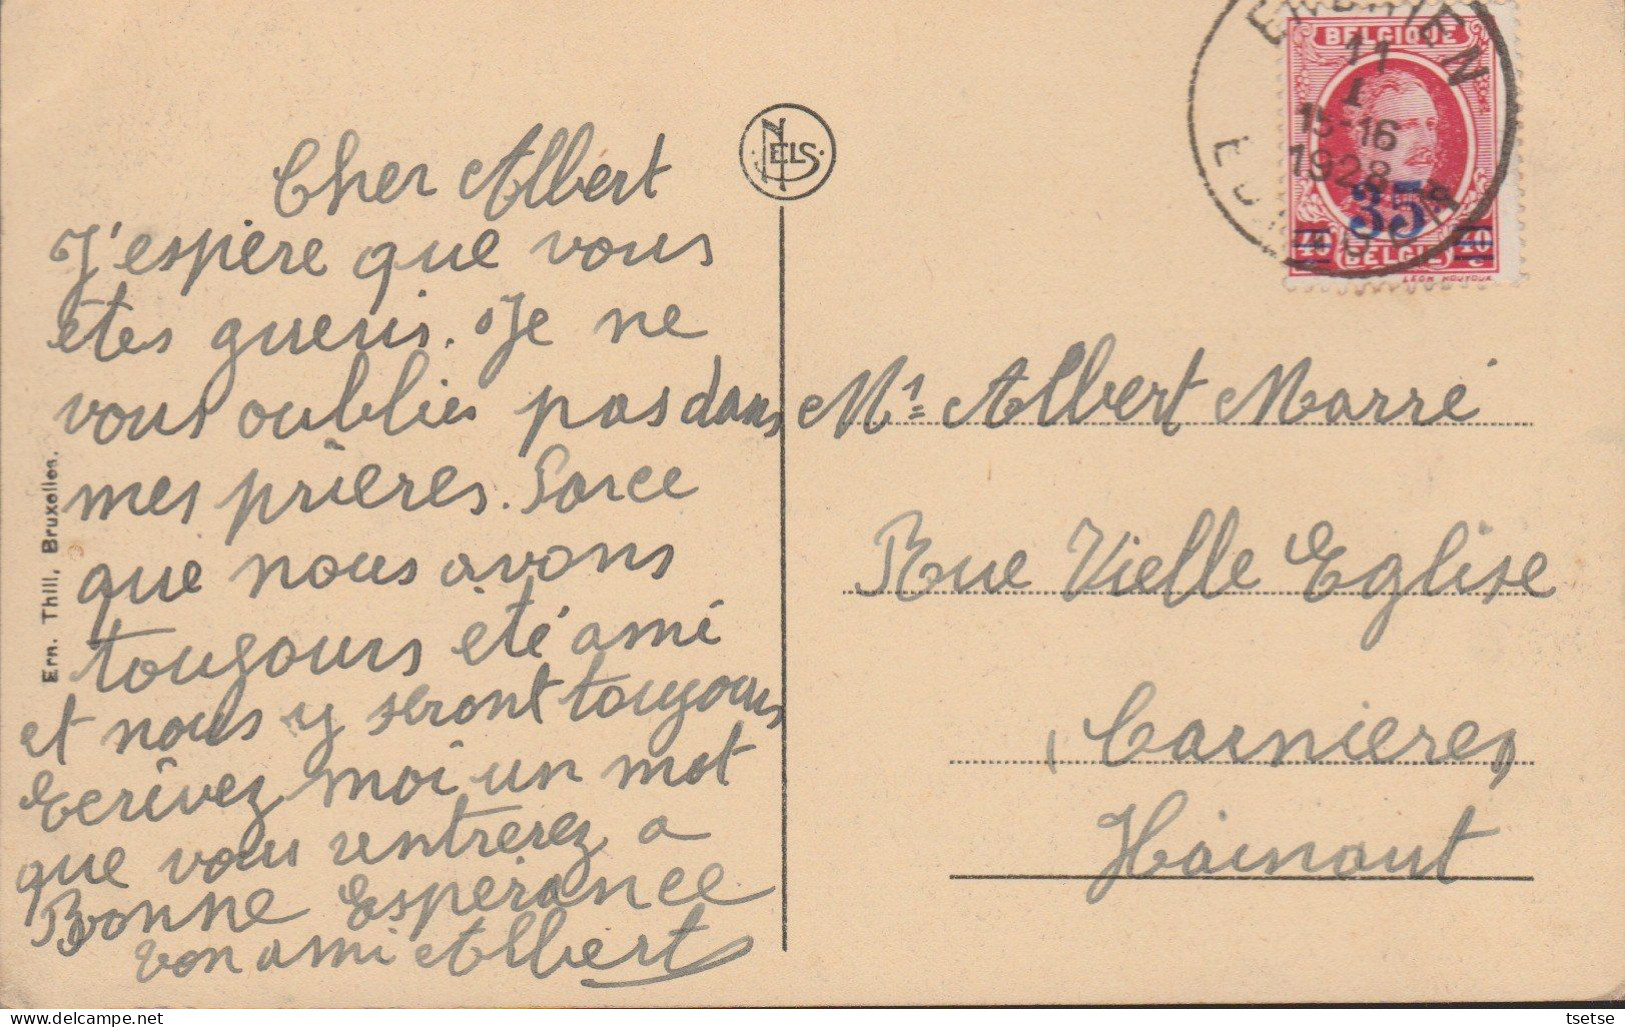 Cher Albert
J'espère que vous
êtes gueris. Je ne
vous oublies pas dans
mes prières. Parce
que nous avons
toujours été ami
et nous y seront toujours
Ecrivez moi un mot
que vous rentrerez a
Bonne Espérance
ton ami Albert
Ern. Thill, Bruxelles.
NELS
BELGIQUE
11
I
15-16
1928
35c
40
40
c
BELGIË
LEON HOUYOUX
Mr Albert Marré
Rue Vielle Eglise
(Carnières)
Hainaut
tsetse